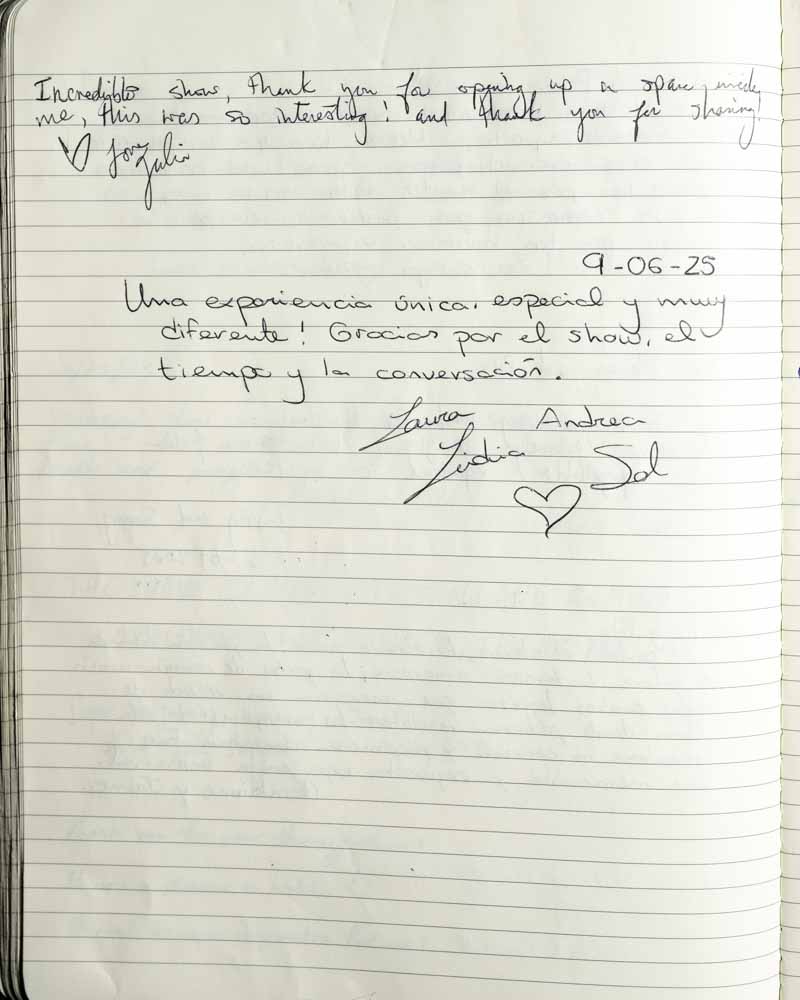 Incredible show, thank you for opening up a space inside
me, this was so interesting! and thank you for sharing!
love Julia
9-06-25
Una experiencia única, especial y muy
diferente! Gracias por el show, el
tiempo y la conversación.
Laura Andrea
Lidia Sol